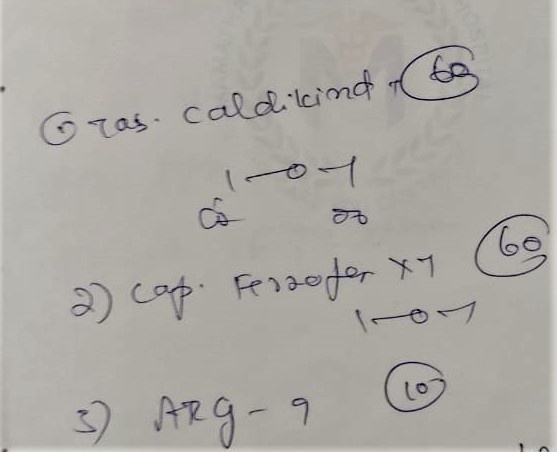 ① Tas. Caldikind + 60
1-0-1
2) Cap. Ferrofer XT 60
1-0-1
3) ARG-9 10